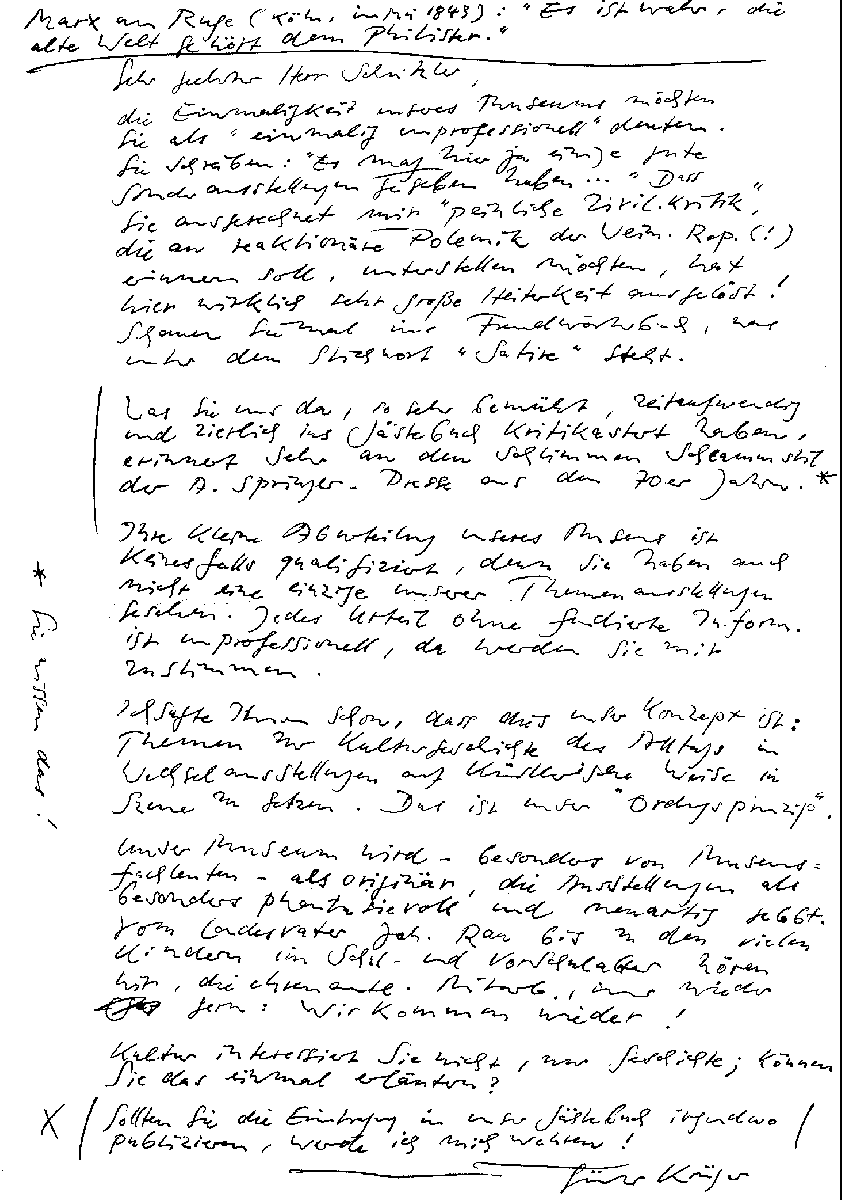 Marx an Ruge (Köln, im Mai 1843): "Es ist wahr, die
alte Welt gehört dem Philister."
Sehr geehrter Herr
die Einmaligkeit unseres Museums möchten
Sie als "einmalig unprofessionell" deuten.
Sie schreiben: "Es mag hier ja einige gute
Sonderausstellungen gegeben haben..." Dass
Sie ausgerechnet mir "peinliche Zivil.kritik",
die an reaktionäre Polemik der Weim. Rep. (!)
erinnern soll, unterstellen möchten, hat
hier wirklich sehr große Heiterkeit ausgelöst!
Schauen Sie mal ins Fremdwörterbuch, was
unter dem Stichwort "Satire" steht.
Was Sie uns da, so sehr bemüht, zeitaufwendig
und zierlich ins Gästebuch kritikastert haben,
erinnert sehr an den schlimmen Schlammstil
der A. Springer-Presse aus den 70er Jahren. *
Ihre kleine Aburteilung unseres Museums ist
keinesfalls qualifiziert, denn Sie haben auch
nicht eine einzige unserer Themenausstellungen
gesehen. Jedes Urteil ohne fundierte Inform.
ist unprofessionell, da werden Sie mir
zustimmen.
Ich sagte Ihnen schon, dass dies unser Konzept ist:
Themen zur Kulturgeschichte des Alltags in
Wechselausstellungen auf künstlerische Weise in
Szene zu setzen. Das ist unser "Ordngsprinzip".
Unser Museum wird - besonders von Museums=
fachleuten - als originär, die Ausstellungen als
besonders phantasievoll und neuartig gelobt.
Vom Landesvater Joh. Rau bis zu den vielen
Kindern im Schul- und Vorschulalter hören
wir, die ehrenamtl. Mitarb., immer wieder
gern: Wir kommen wieder!
Kultur interessiert Sie nicht, nur Geschichte; können
Sie das einmal erläutern?
X Sollten Sie die Eintragung in unser Gästebuch irgendwo
publizieren, werde ich mich wehren!
Krüger
* Sie wissen das!